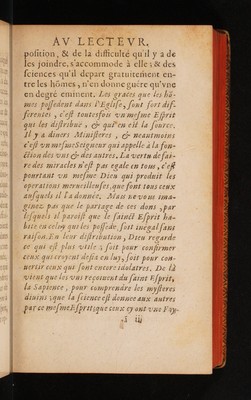 AV LECTEVR.
position, & de la difficulté qu'il y a de
les joindre, s'accommode à elle; & des
sciences qu'il depart gratuitement en-
tre les hõmes, n'en donne guére qu'vne
en degré eminent. Les graces que les hõ-
mes possedent dans l'Eglise, sont fort dif-
ferentes, c'est toutesfois vn mesme Esprit
qui les distribuë, & qui en est la source.
Il y a divers Ministeres, & neautmoins
c'est vn mesme Seigneur qui appelle à la fon-
ction des vns & des autres. La vertu de fai-
re des miracles n'est pas egale en tous, c'est
pourtant vn mesme Dieu qui produit les
operations merueilleuses, que font tous ceux
ausquels il l'a donnée. Mais ne vous ima-
ginez pas que le partage de ces dons, par
lesquels il paroist que le sainct Esprit ha-
bite en celuy qui les possede, soit inégal sans
raison. En leur distribution, Dieu regarde
ce qui est plus vtile; soit pour confirmer
ceux qui croyent desia en luy, soit pour con-
uertir ceux qui sont encore idolatres. De là
vient que les vns reçoiuent du saint Esprit,
la Sapience, pour comprendre les mysteres
diuins; que la science est donnée aux autres
par ce mesme Esprit; que ceux cy ont vne Foy
ã iij